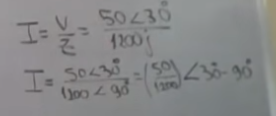 I = V/Z = 50∠30°/1200j
I = 50∠30°/1200∠90° = (50/1200) ∠30°-90°